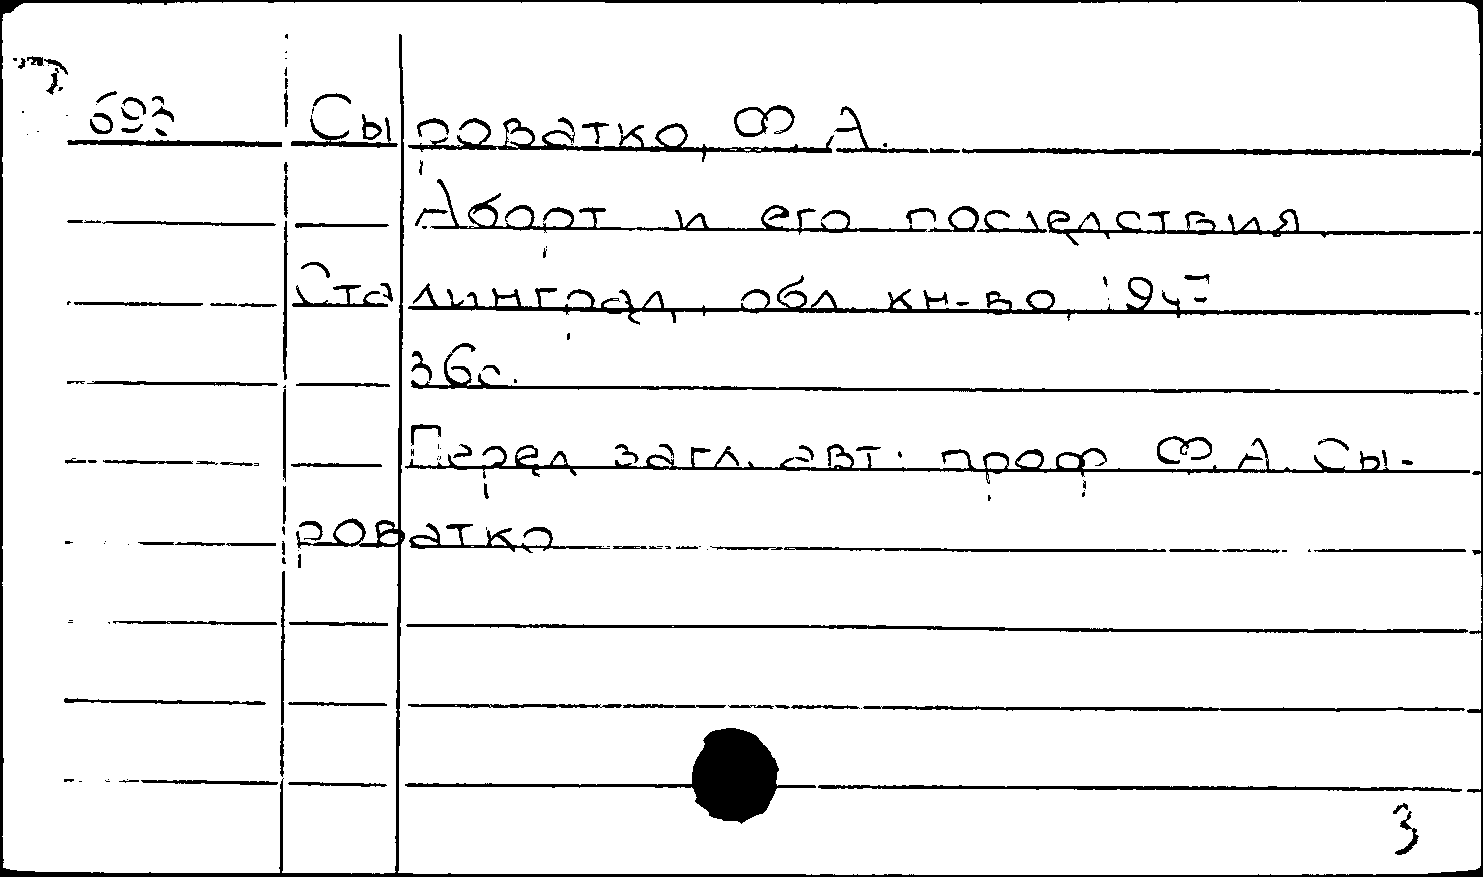 693 Сыроватко, Ф. А.
Аборт и его последствия.
Сталинград, обл. кн-во,
36 с.
Перед загл. авт.: проф. Ф. А. Сы-
роватко
3